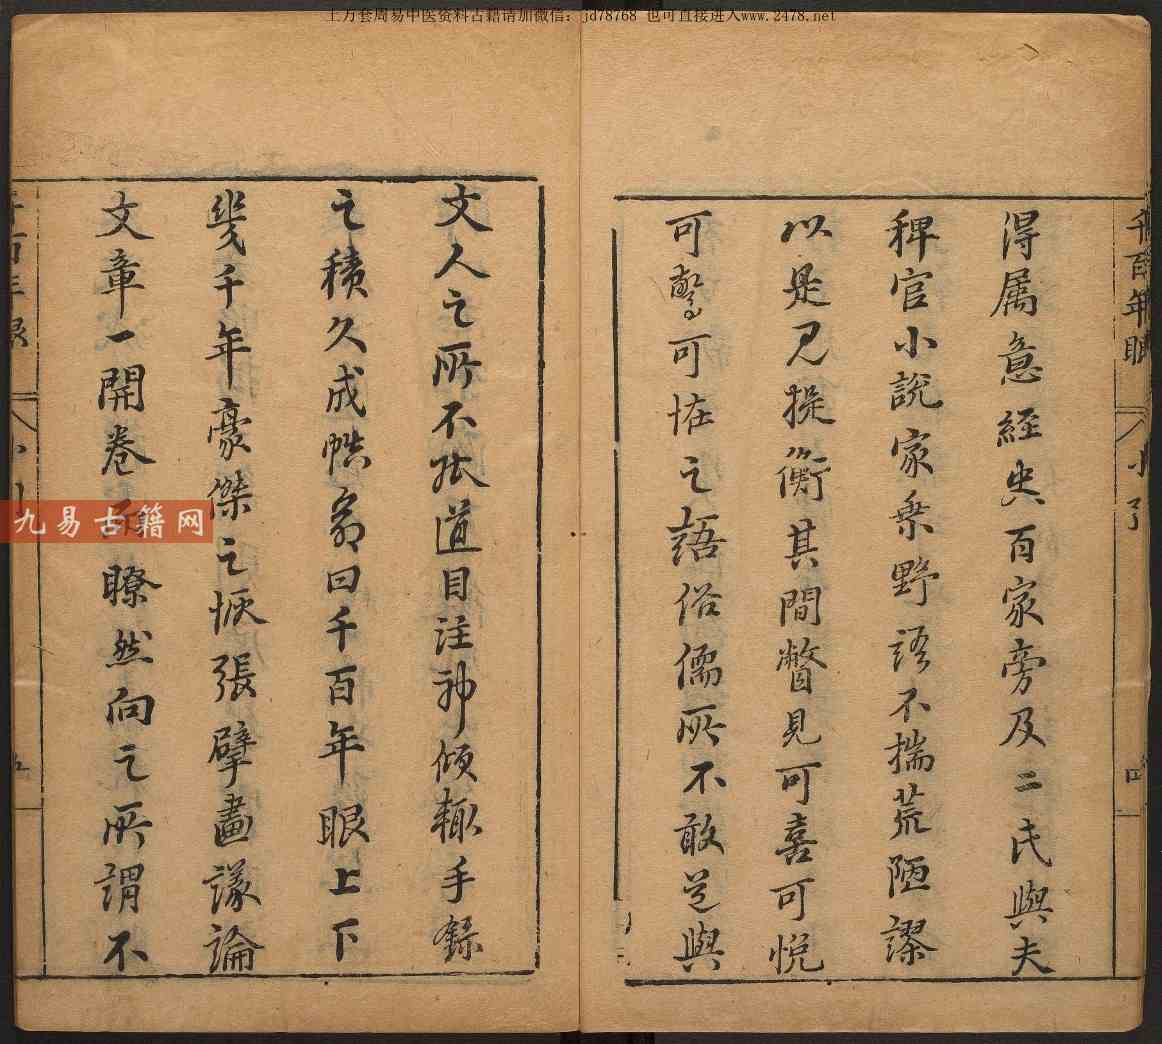 上万套周易中医资料古籍请加微信：jd78768 也可直接进入www.2478.net
千百年眼 小引 四
得属意經史百家旁及二氏與夫
稗官小說家乘野語不揣荒陋謬
以是見提衡其間瞥見可喜可悦
可驚可怪之語俗儒所不敢道與
文人之所不能道目注神傾輒手錄
之積久成帙命曰千百年眼上下
幾千年豪傑之恢張擘畫議論
文章一開卷而瞭然向之所謂不
千百年眼 小引 五
九易古籍网